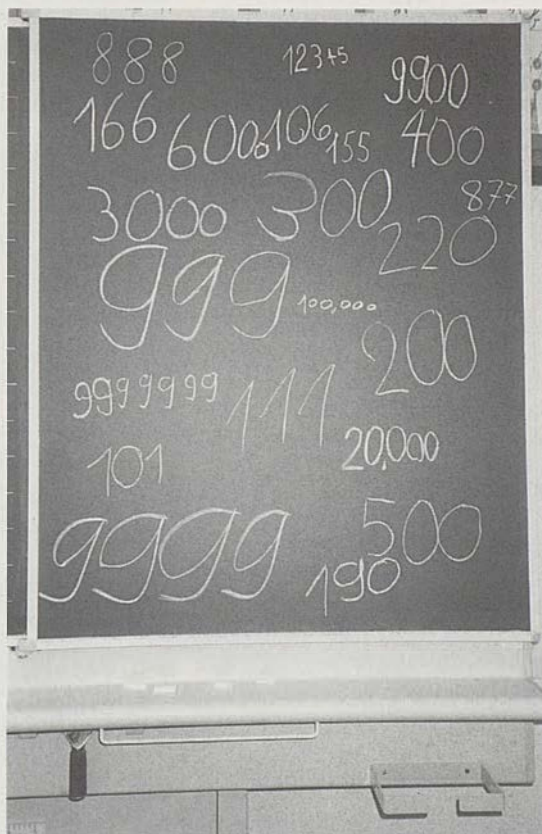 888 123+5 9900
166 6000 106 155 400
3000 300 877
220
999 100,000
200
9999999 111
101 20,000
9999 500
190